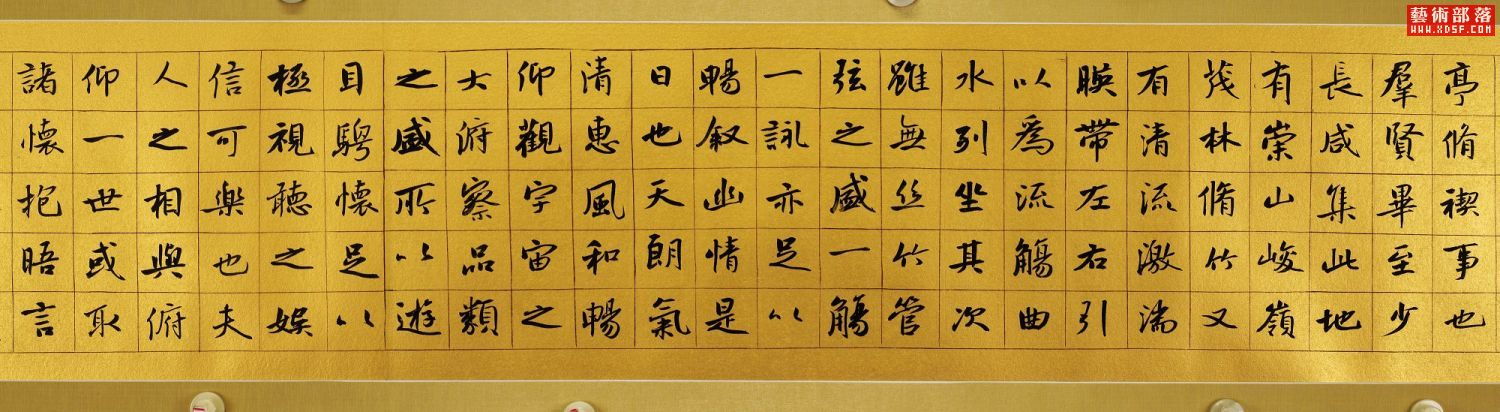 亭脩禊事也
羣賢畢至少
長咸集此地
有崇山峻嶺
茂林脩竹又
有清流激湍
暎帶左右引
以爲流觴曲
水列坐其次
雖無丝竹管
弦之盛一觴
一詠亦足以
暢叙幽情是
日也天朗氣
清惠風和暢
仰觀宇宙之
大俯察品類
之盛所以遊
目騁懷足以
極視聽之娱
信可樂也夫
人之相與俯
仰一世或取
諸懷抱晤言
藝術部落
WWW.XDSF.COM